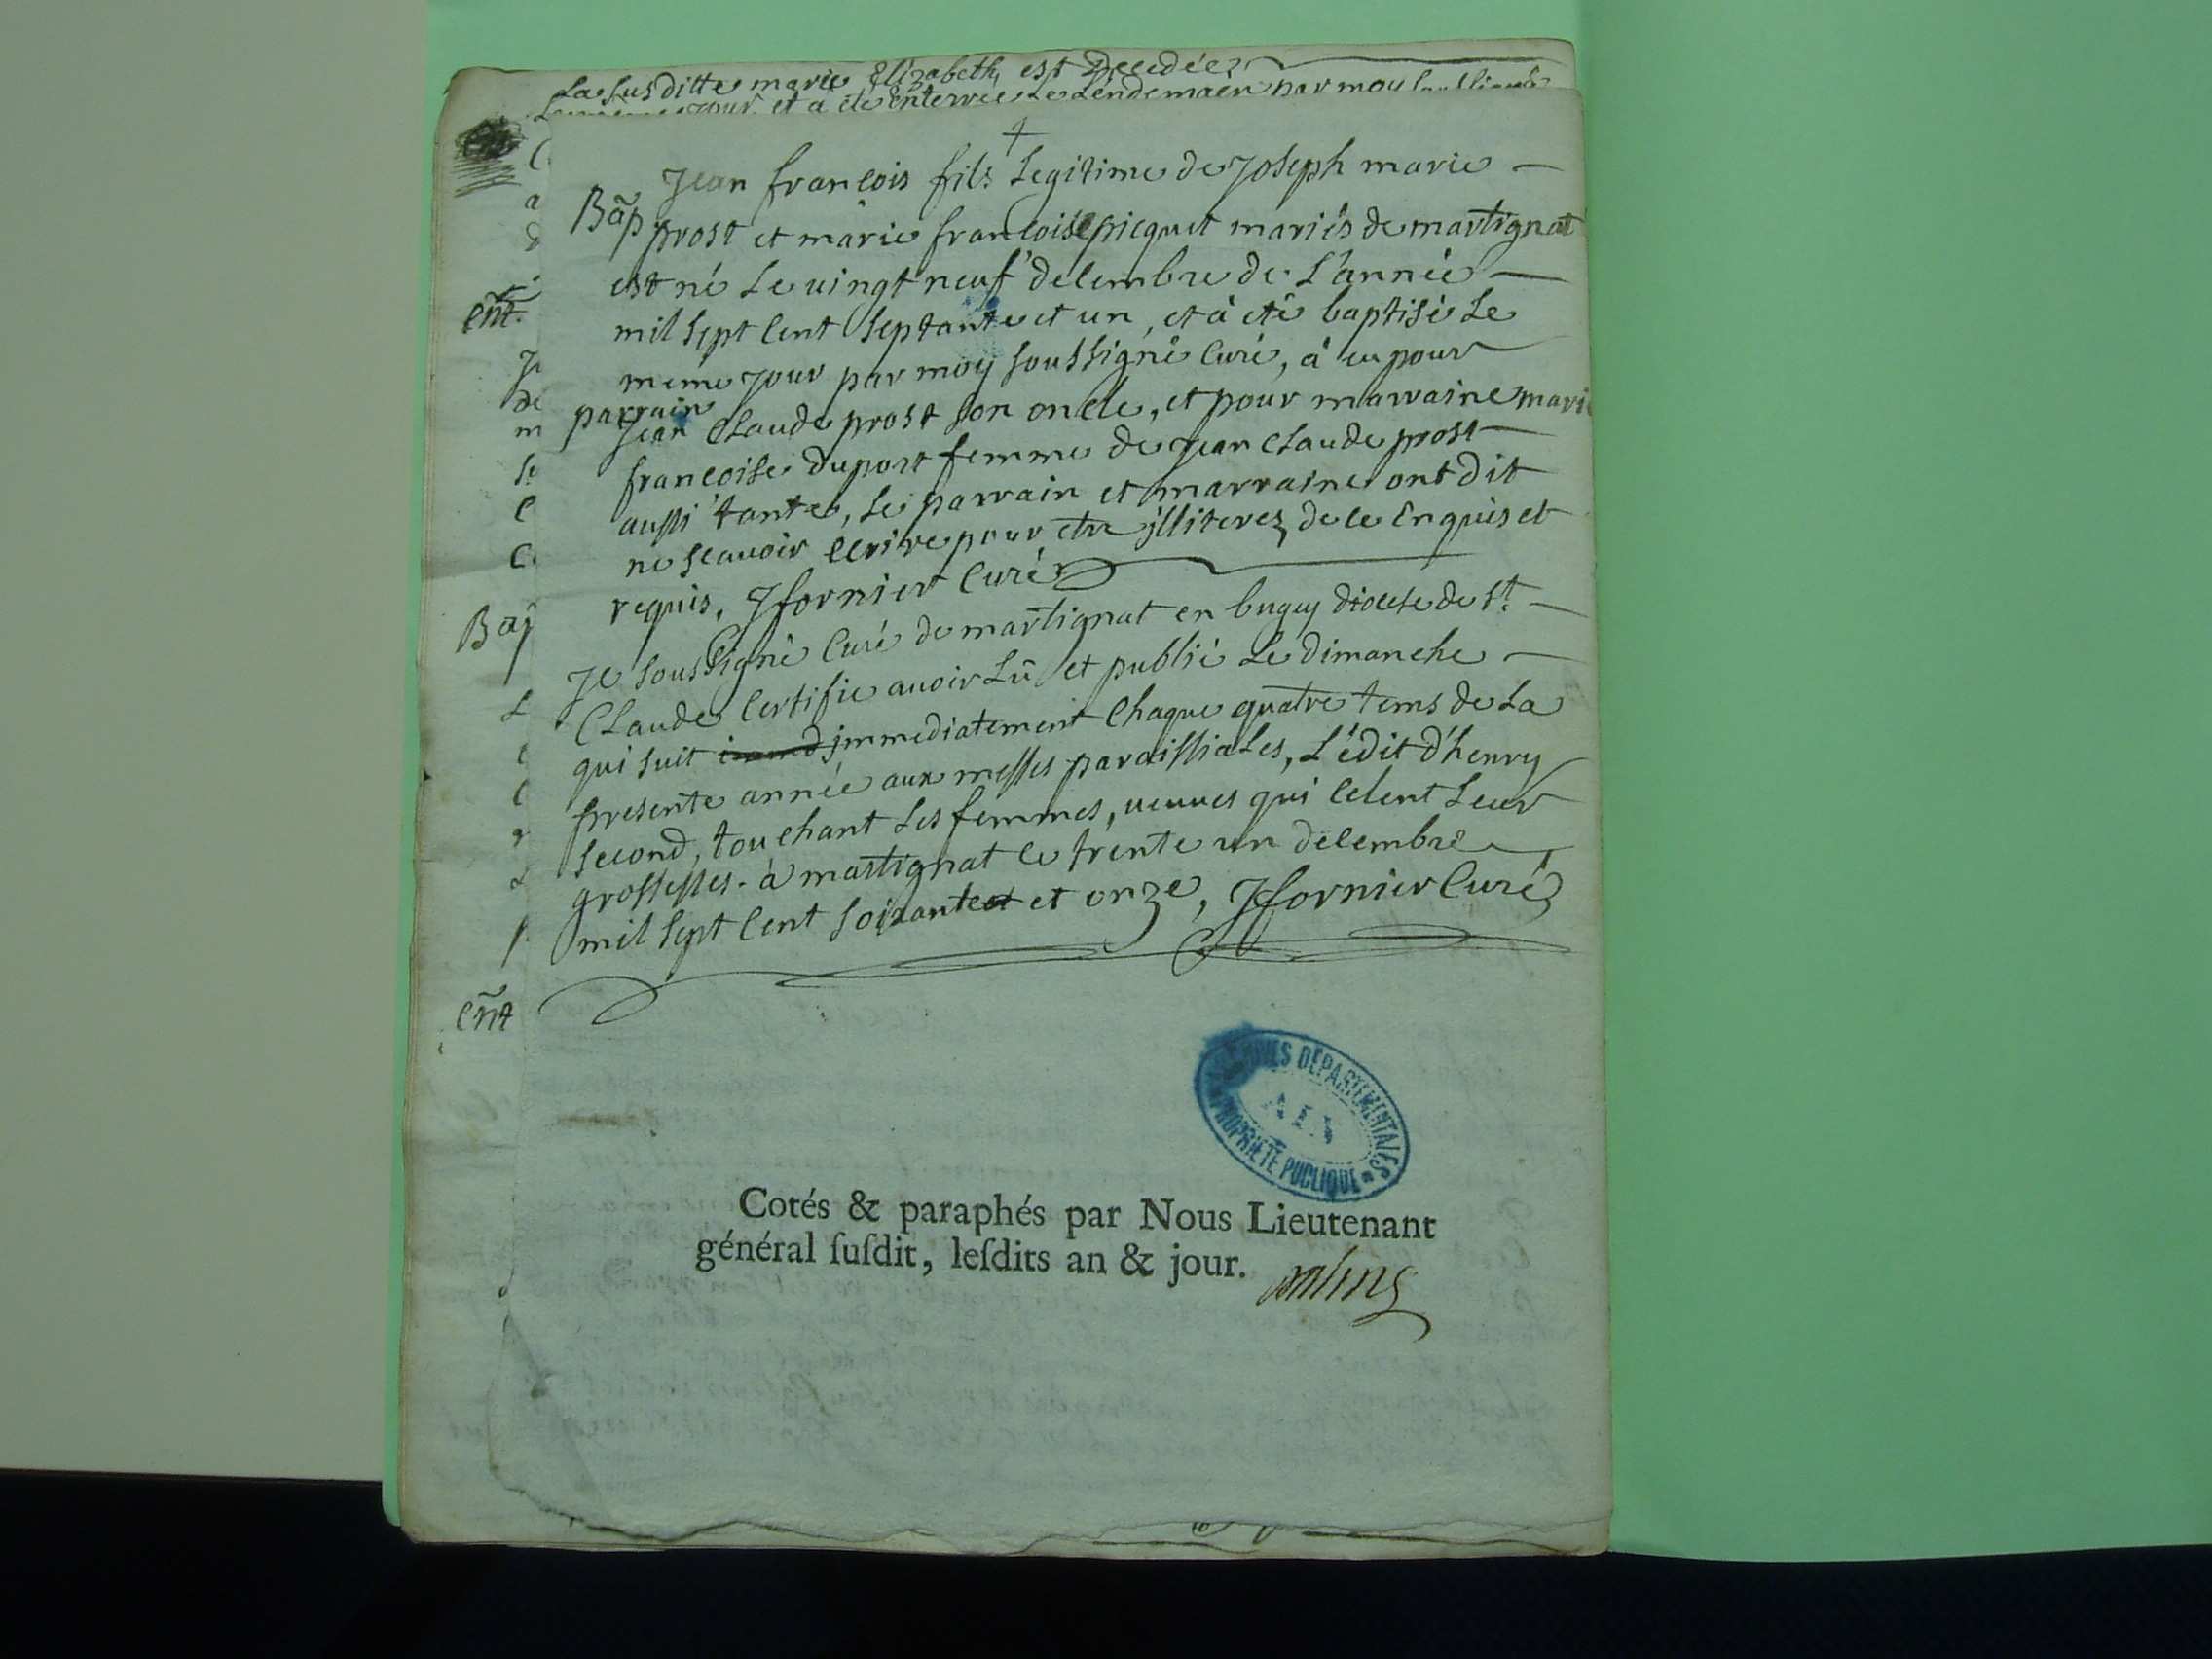 La susditte marie Elizabeth est Decedée
jour et a été enterrée Le Lendemain par moy soussigné
+
Jean francois fils Legitime de Joseph marie
Bãp prost et marie francoise picquet mariés de martignat
est né Le vingt neuf decembre de L'année
mil sept cent septante et un, et à eté baptisé Le
même jour par moy soussigné Curé, à eu pour
parrain Jean Claude prost son oncle, et pour marraine marie
francoise duport femme de Jean Claude prost
aussi tante, Le parrain et marraine ont dit
ne scauoir ecrire pour etre illiterez de ce Enquis et
requis, Jfornier Curé
Je soussigné Curé de martignat en bugey diocese de St.
Claude certifie auoir Lû et publié Le dimanche
qui suit immediatement Chaque quatre tems de La
presente année aux messes paroissiales, L'édit d'henry
second, touchant Les femmes, veuves qui celent Leur
grossesses. à martignat le trente un decembre
mil sept cent soixante et onze, Jfornier Curé
eñt.
Bap
eñt
ARCHIVES DÉPARTEMENTALES
AIN
PROPRIÉTÉ PUBLIQUE
Cotés & paraphés par Nous Lieutenant
général suſdit, leſdits an & jour.